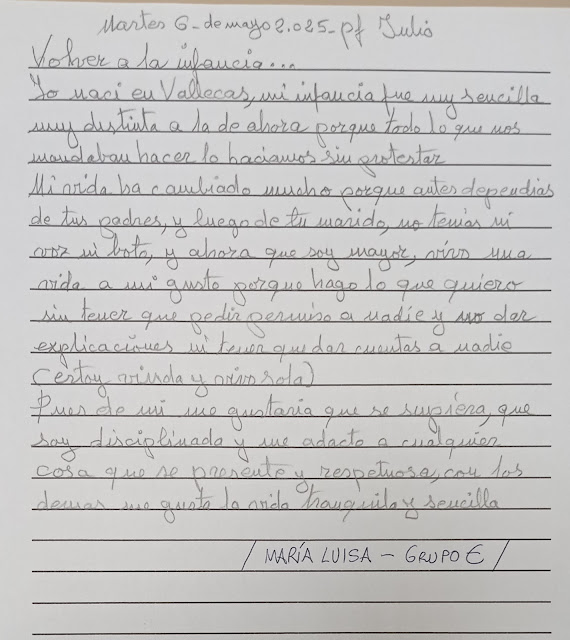 Martes 6-de mayo 2.025-pf Julio
Volver a la infancia...
Yo naci en Vallecas, mi infancia fue muy sencilla
muy distinta a la de ahora porque todo lo que nos
mandaban hacer lo haciamos sin protestar
Mi vida ha cambiado mucho porque antes dependias
de tus padres, y luego de tu marido, no tenias ni
voz ni boto, y ahora que soy mayor, vivo una
vida a mi gusto porque hago lo que quiero
sin tener que pedir permiso a nadie y no dar
explicaciones ni tener que dar cuentas a nadie
(estoy viuda y vivo sola)
Pues de mi me gustaria que se supiera, que
soy disciplinada y me adacto a cualquier
cosa que se presente y respetuosa, con los
demas me gusta la vida tranquila y sencilla
/MARÍA LUISA - GRUPO E/